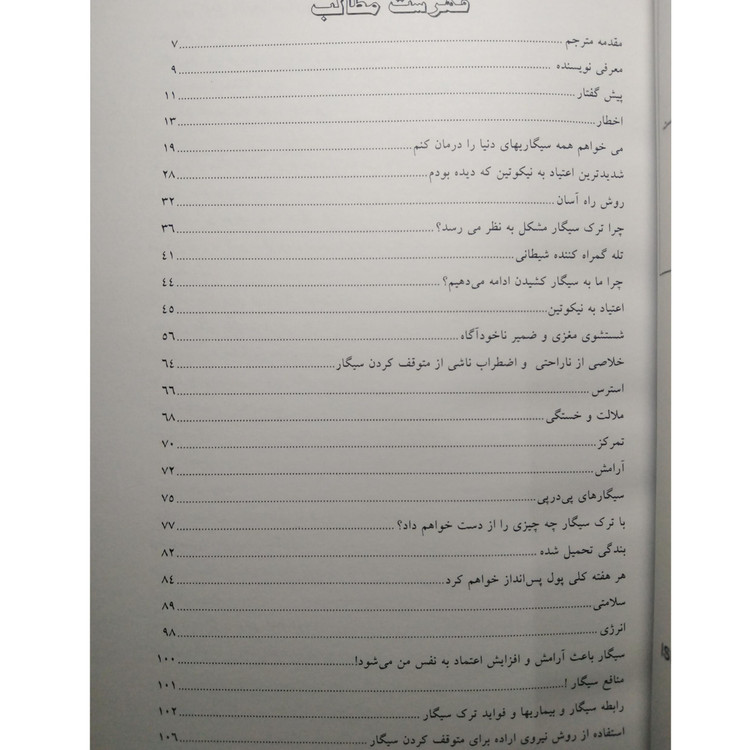 فهرست مطالب
مقدمه مترجم ۷
معرفی نویسنده ۹
پیش گفتار ۱۱
اخطار ۱۳
می خواهم همه سیگاریهای دنیا را درمان کنم ۱۹
شدیدترین اعتیاد به نیکوتین که دیده بودم ۲۸
روش راه آسان ۳۲
چرا ترک سیگار مشکل به نظر می رسد؟ ۳۶
تله گمراه کننده شیطانی ۴۱
چرا ما به سیگار کشیدن ادامه می‌دهیم؟ ۴۴
اعتیاد به نیکوتین ۴۵
شستشوی مغزی و ضمیر ناخودآگاه ۵۶
خلاصی از ناراحتی و اضطراب ناشی از متوقف کردن سیگار ۶۴
استرس ۶۶
ملالت و خستگی ۶۸
تمرکز ۷۰
آرامش ۷۲
سیگارهای پی‌درپی ۷۵
با ترک سیگار چه چیزی را از دست خواهم داد؟ ۷۷
بندگی تحمیل شده ۸۲
هر هفته کلی پول پس‌انداز خواهم کرد ۸۴
سلامتی ۸۹
انرژی ۹۸
سیگار باعث آرامش و افزایش اعتماد به نفس من می‌شود! ۱۰۰
منافع سیگار! ۱۰۱
رابطه سیگار و بیماریها و فواید ترک سیگار ۱۰۲
استفاده از روش نیروی اراده برای متوقف کردن سیگار ۱۰۶